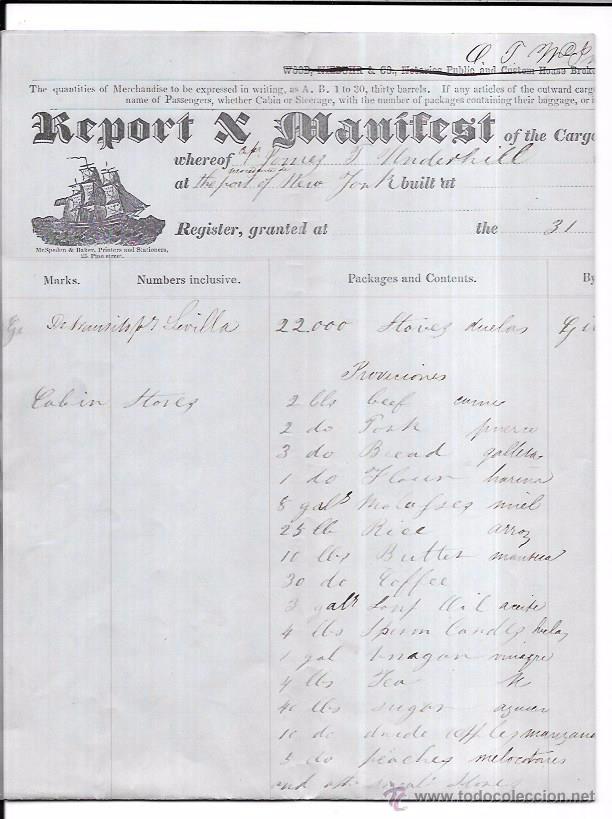 WOOD, NIEBUHR & CO., Notaries Public and Custom House Brok
The quantities of Merchandise to be expressed in writing, as A. B. 1 to 30, thirty barrels. If any articles of the outward carg
name of Passengers, whether Cabin or Steerage, with the number of packages containing their baggage, or i
Report & Manifest of the Cargo
whereof Underhill
at the port of New York built at
Register, granted at the 31
McSpedon & Baker, Printers and Stationers,
25 Pine street.
Marks. Numbers inclusive. Packages and Contents. By
Sevilla 22.000 Staves duelas
Proviciones
Cabin Stores 2 bls beef carne
2 do Pork puerco
3 do Bread galleta
1 do Flour harina
8 galls Molasses miel
25 lb Rice arroz
10 lbs Butter manteca
30 do Coffee
3 galls Oil aceite
4 lbs Sperm Candles
1 gal vinagar vinagre
4 lbs Tea
40 lbs sugar azucar
10 do apples manzana
5 do peaches melocotones
and Stores
www.todocoleccion.net